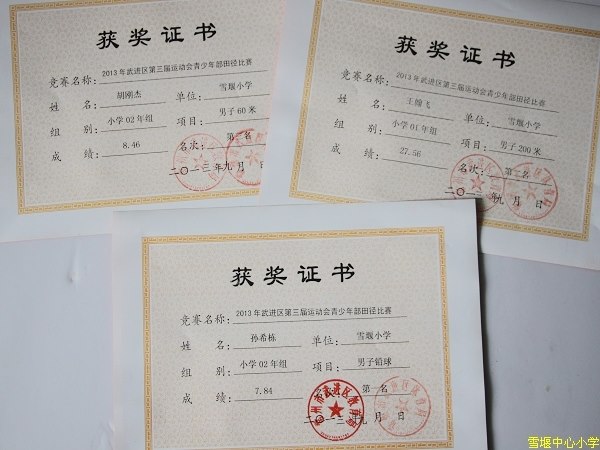 获奖证书
竞赛名称：2013年武进区第三届运动会青少年部田径比赛
姓 名：胡刚杰 单位：雪堰小学
组 别：小学02年组 项目：男子60米
成 绩：8.46 名次：第二名
二〇一三年九月 日
获奖证书
竞赛名称：2013年武进区第三届运动会青少年部田径比赛
姓 名：王翰飞 单位：雪堰小学
组 别：小学01年组 项目：男子200米
成 绩：27.56 名次：第二名
二〇一三年九月 日
获奖证书
竞赛名称：2013年武进区第三届运动会青少年部田径比赛
姓 名：孙希栋 单位：雪堰小学
组 别：小学02年组 项目：男子铅球
成 绩：7.84 第 名
常州市武进区教育局
二〇一三年九月 日
雪堰中心小学